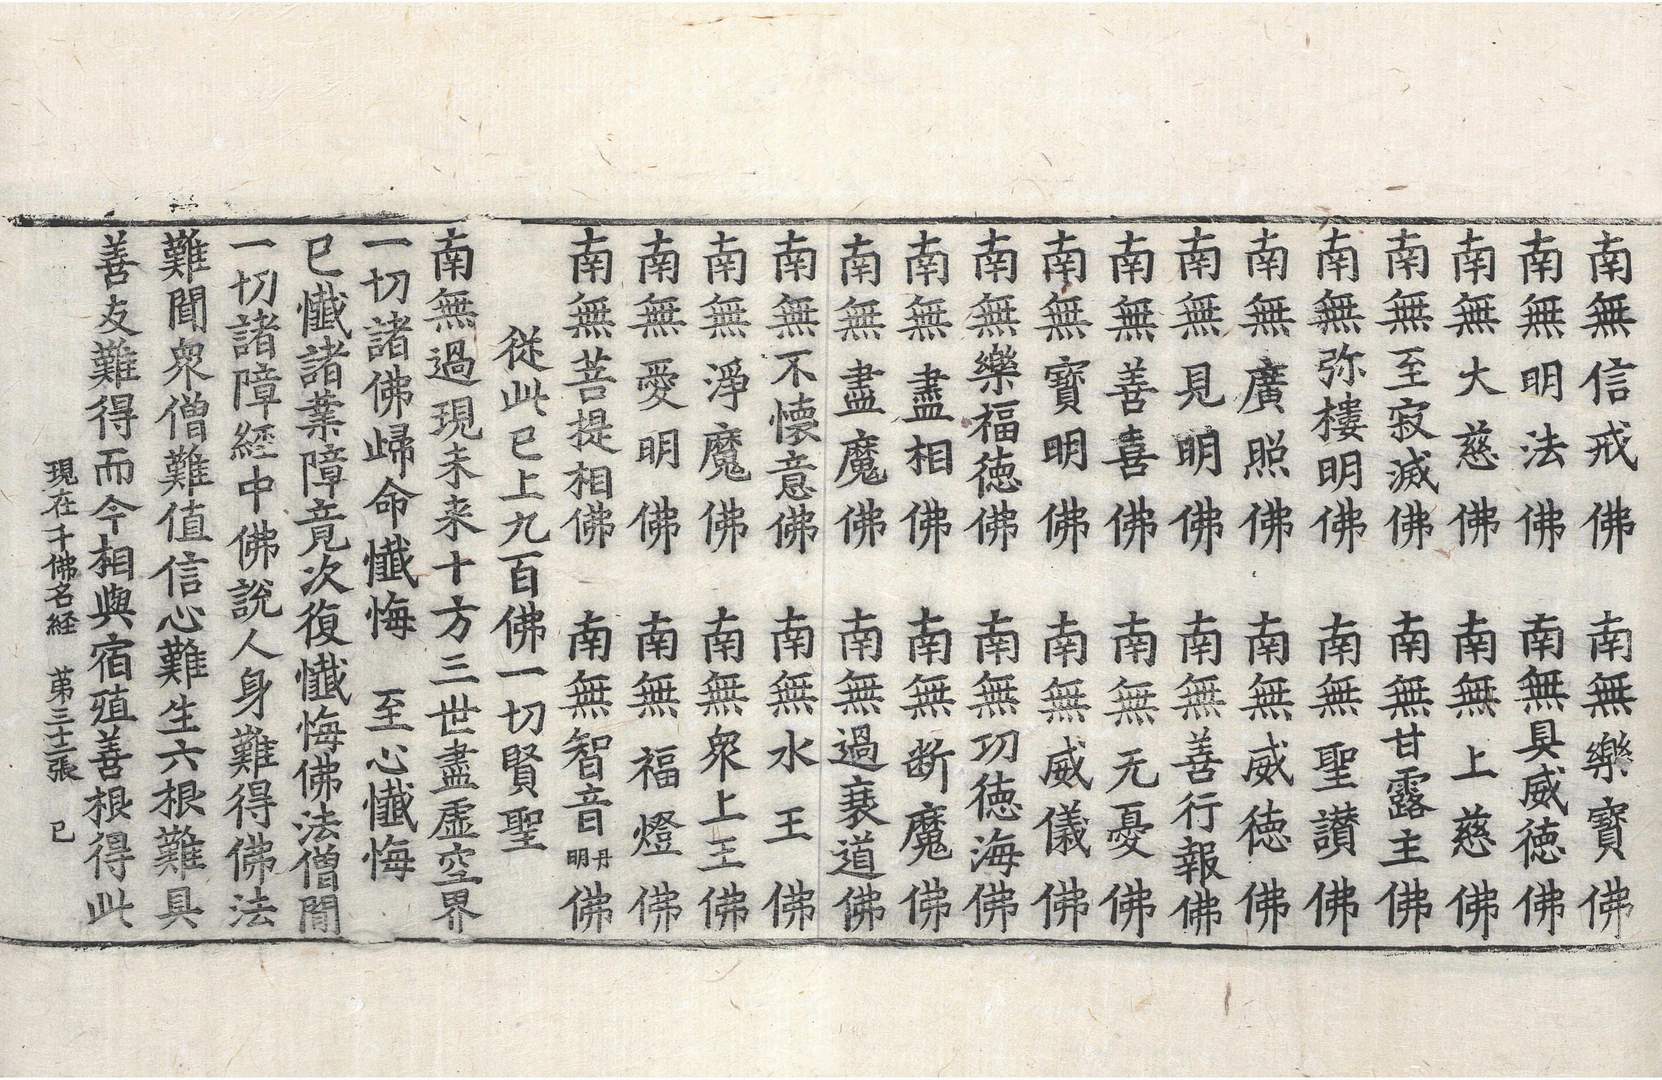 南無信戒佛 南無樂寶佛
南無明法佛 南無具威德佛
南無大慈佛 南無上慈佛
南無至寂滅佛 南無甘露主佛
南無弥樓明佛 南無聖讃佛
南無廣照佛 南無威徳佛
南無見明佛 南無善行報佛
南無善喜佛 南無无憂佛
南無寶明佛 南無威儀佛
南無樂福德佛 南無功德海佛
南無盡相佛 南無断魔佛
南無盡魔佛 南無過衰道佛
南無不懷意佛 南無水王佛
南無淨魔佛 南無衆上王佛
南無愛明佛 南無福燈佛
南無菩提相佛 南無智音丹明佛
従此已上九百佛一切賢聖
南無過現未来十方三世盡虚空界
一切諸佛歸命懺悔 至心懺悔
已懺諸業障竟次復懺悔佛法僧間
一切諸障經中佛說人身難得佛法
難聞衆僧難值信心難生六根難具
善友難得而今相與宿殖善根得此
現在千佛名経 苐三十二張 已